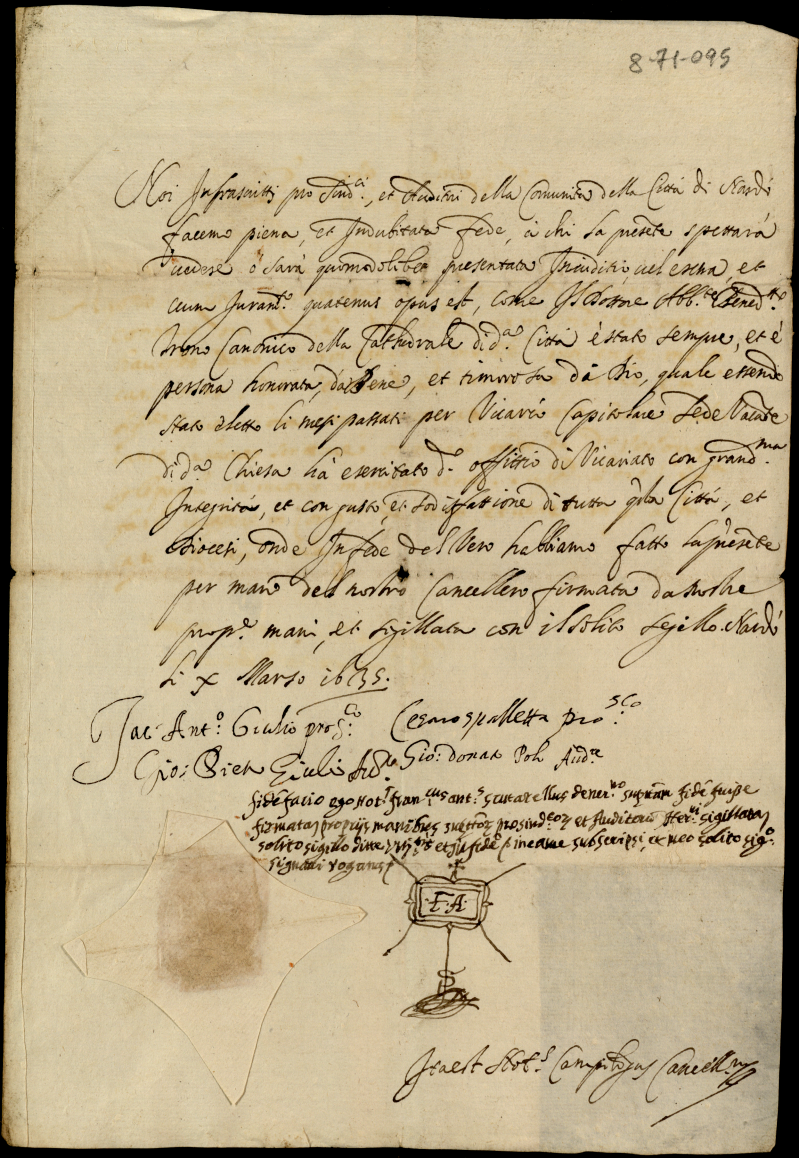 8-71-095
Noi Infrascritti pro Sind.ci, et Auditori della Comunità della Città di Nardò
facemo piena, et Indubitata fede, à chi la presete spettarà
uedere ò sarà quomodolibet presentata In iuditio, uel extra, et
cum Juram.to quatenus opus est, come Abb.te Bened.tto
Canonico della Cathedrale di d.a Città è stato sempre, et è
persona honorata, da bene, et timorosa di Dio, quale essendo
stato eletto li mesi passati per Vicario Capitolare Sede Vacate
di d.a Chiesa hà esercitato d.o offitio di Vicariato con grand.ma
Integrità, et con gusto, et sodisfattione di tutta q.la Città, et
Diocesi, onde In fede del Vero habbiamo fatto la presete
per mano del nostro Cancellero firmata da nostre
prop.e mani, et sigillata con il solito segillo. Nardò
li x Marzo 1635.
Jac. Ant.o Giulio pro S.co Cesaro spalletta pro S.co
Giulii Aud.re Gio: Donat Poli Aud.re
fidē facio ego Not.r Fran.cus Ant.s de Ner.to fidē fuisse
firmatas proprijs manibus prosind.
solito sigillo et in fidē me subscripsi, et meo solito sig.o
signavi rogatus
F. A.
Ita est Not.s Cancell.us